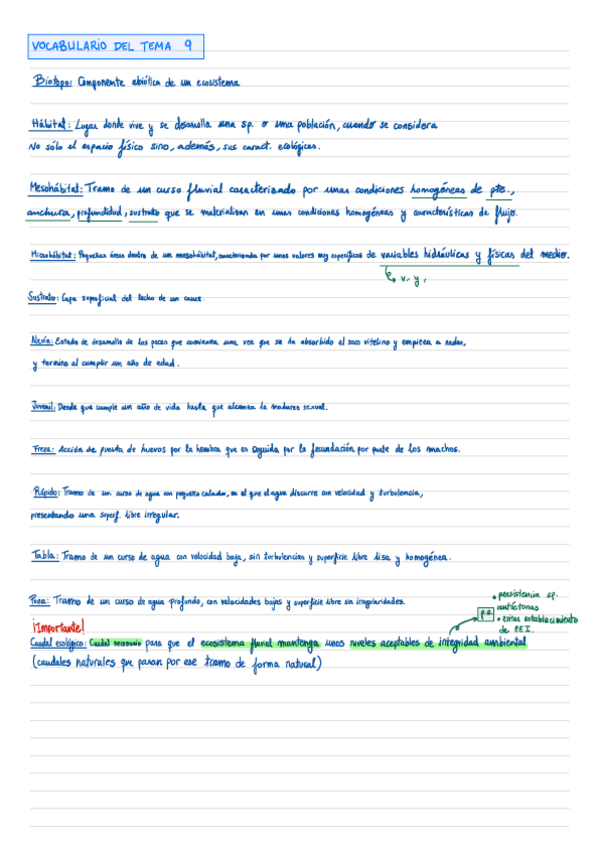 VOCABULARIO DEL TEMA 9
Biotopo: Componente abiótica de un ecosistema
Hábitat: Lugar donde vive y se desarrolla una sp. o una población, cuando se considera
No sólo el espacio físico sino, además, sus caract. ecológicas.
Mesohábitat: Tramo de un curso fluvial caracterizado por unas condiciones homogéneas de pte.,
anchura, profundidad, sustrato que se materializan en unas condiciones homogéneas y características de flujo.
Microhábitat: Pequeñas áreas dentro de un mesohábitat, caracterizada por unos valores muy específicos de variables hidráulicas y físicas del medio.
↳ v, y,
Sustrato: Capa superficial del lecho de un cauce.
Alevín: Estado de desarrollo de los peces que comienza una vez que se ha absorbido el saco vitelino y empieza a nadar,
y termina al cumplir un año de edad.
Juvenil: Desde que cumple un año de vida hasta que alcanza la madurez sexual.
Freza: Acción de puesta de huevos por la hembra que es seguida por la fecundación por parte de los machos.
Rápido: Tramo de un curso de agua con pequeño calado, en el que el agua discurre con velocidad y turbulencia,
presentando una superf. libre irregular.
Tabla: Tramo de un curso de agua con velocidad baja, sin turbulencias y superficie libre lisa y homogénea.
Poza: Tramo de un curso de agua profundo, con velocidades bajas y superficie libre sin irregularidades.
• persistencia sp.
autóctonas
p.e.
• evitar establecimiento
de EEI.
¡Importante!
Caudal ecológico: Caudal necesario para que el ecosistema fluvial mantenga unos niveles aceptables de integridad ambiental
(caudales naturales que pasan por ese tramo de forma natural)